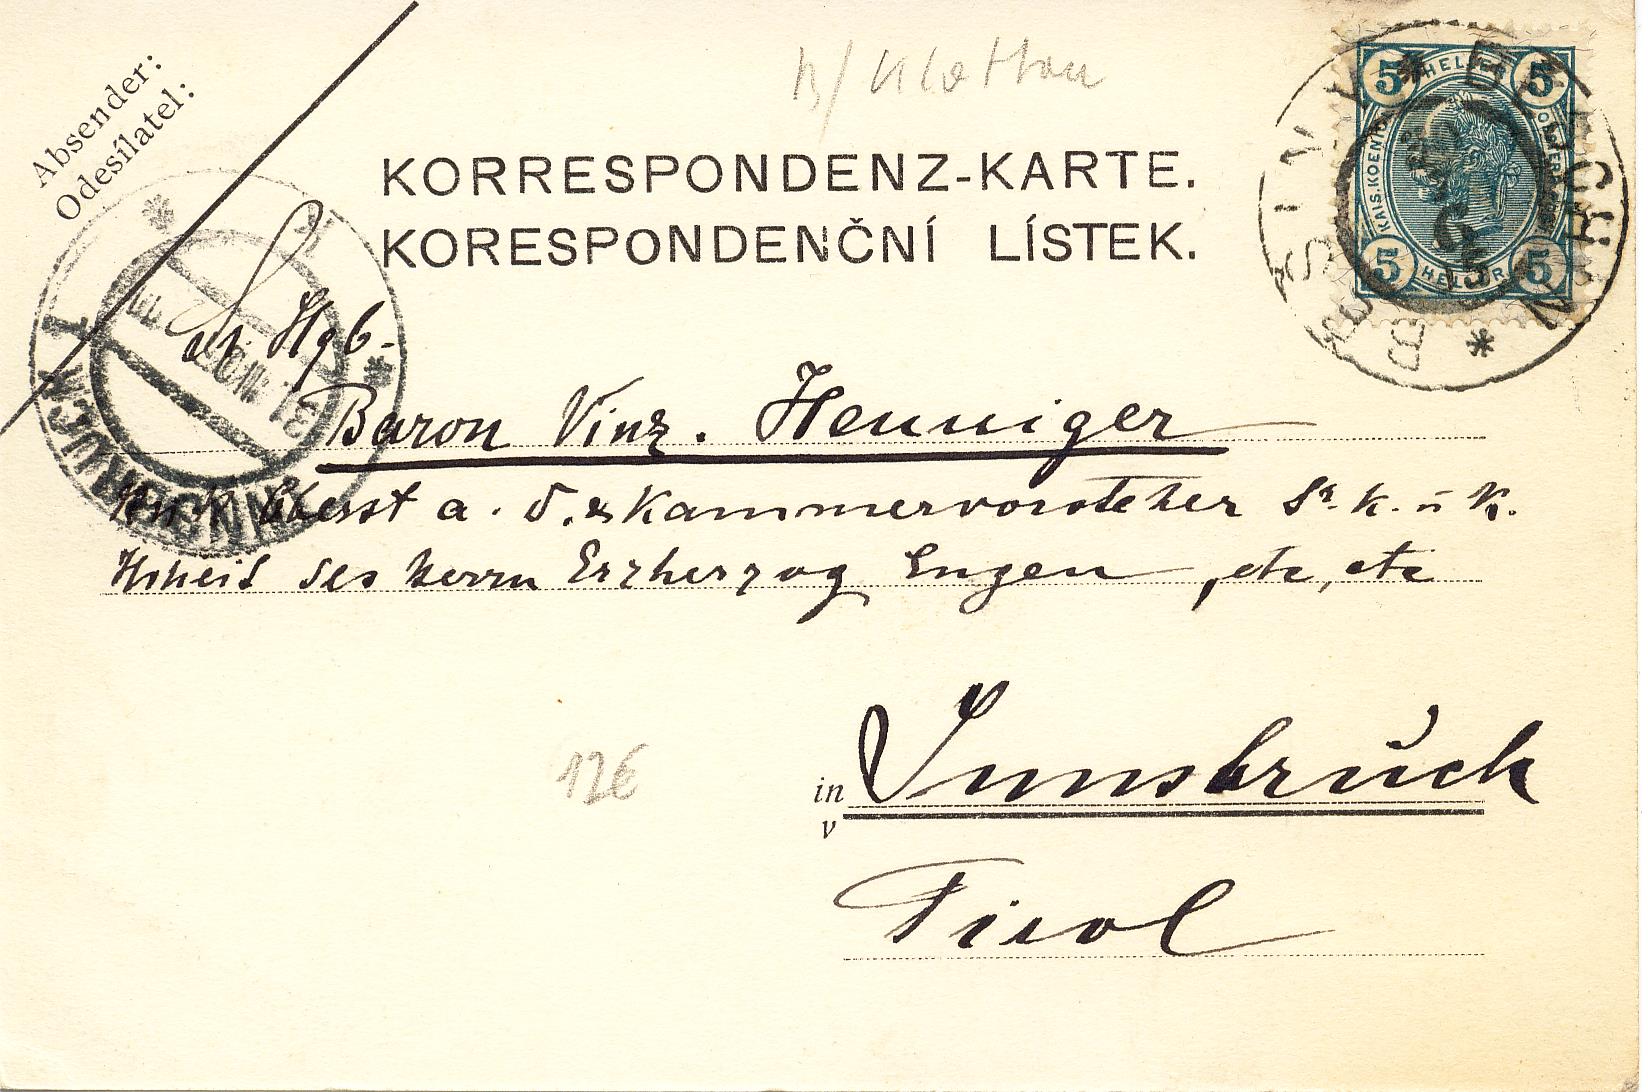 Absender:
Odesílatel:
KORRESPONDENZ-KARTE.
KORESPONDENČNÍ LÍSTEK.
5 HELLER 5
5 HELLER 5
INNSBRUCK 1
Hgb-
Baron Vinz. Henniger
Oberst a. D. & Kammervorsteher Sr. k. u k.
Hoheit des Herrn Erzherzog Eugen, etc, etc
in Innsbruck
v
Tirol
12€